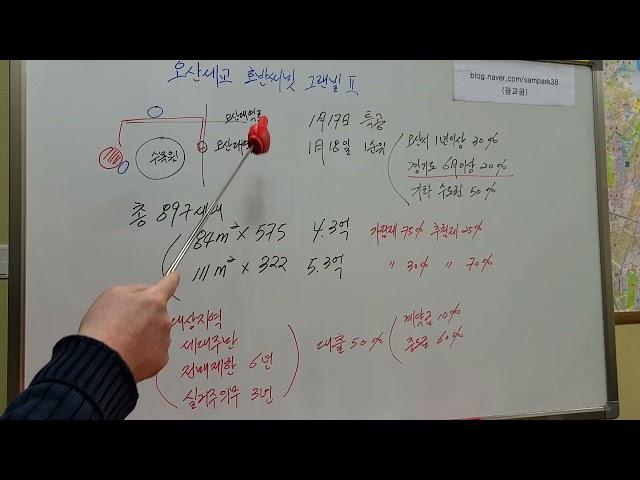 오산세교 호반써밋 그랜빌 Ⅱ
blog.naver.com/sampark38
(광교곰)
오산대역
수목원
오산대
1月17日 특공
1月18일 1순위
오산시 1년이상 30%
경기도 6月이상 20%
기타 수도권 50%
총 897세대
84m² × 575 4.3억 가점제 75% 추첨제 25%
111m² × 322 5.3억 〃 30% 〃 70%
대상지역
세대주만
전매제한 6년
실거주의무 3년
대출 50%
계약금 10%
중도금 60%